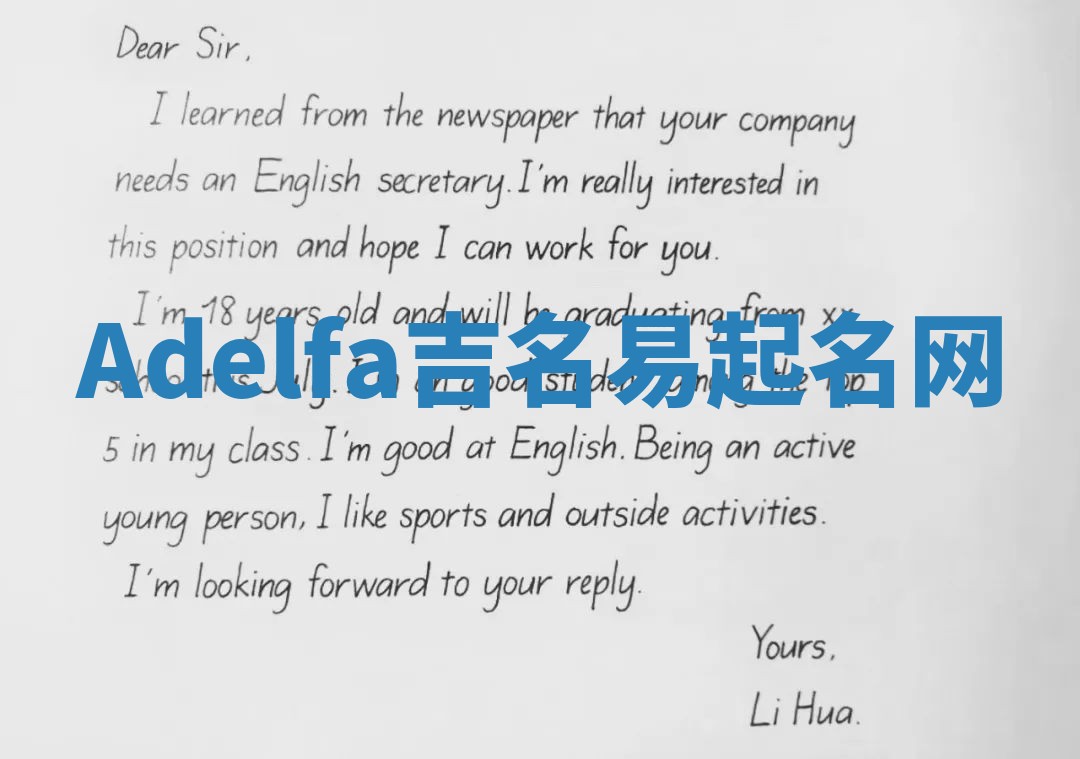 Dear Sir,
I learned from the newspaper that your company
needs an English secretary. I'm really interested in
this position and hope I can work for you.
I'm 18 years old and will be graduating from xx
Adelfa吉名易起名网
school this July. I'm an good student among the Top
5 in my class. I'm good at English. Being an active
young person, I like sports and outside activities.
I'm looking forward to your reply.
Yours,
Li Hua.